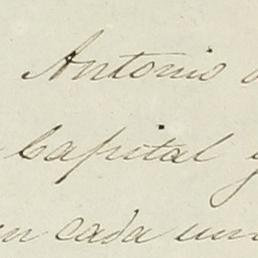 Antonio
Capital y
en cada un